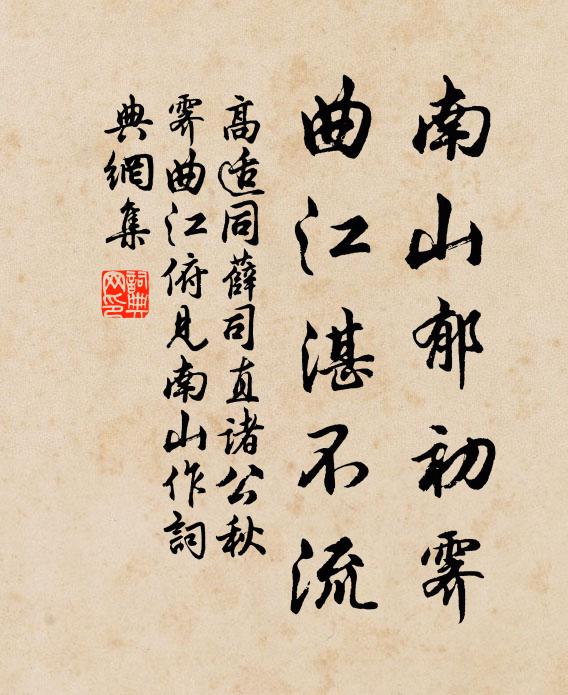 南山郁初霁
曲江湛不流
高适同薛司直诸公秋
霁曲江俯见南山作詞
典網集
詞典
网印